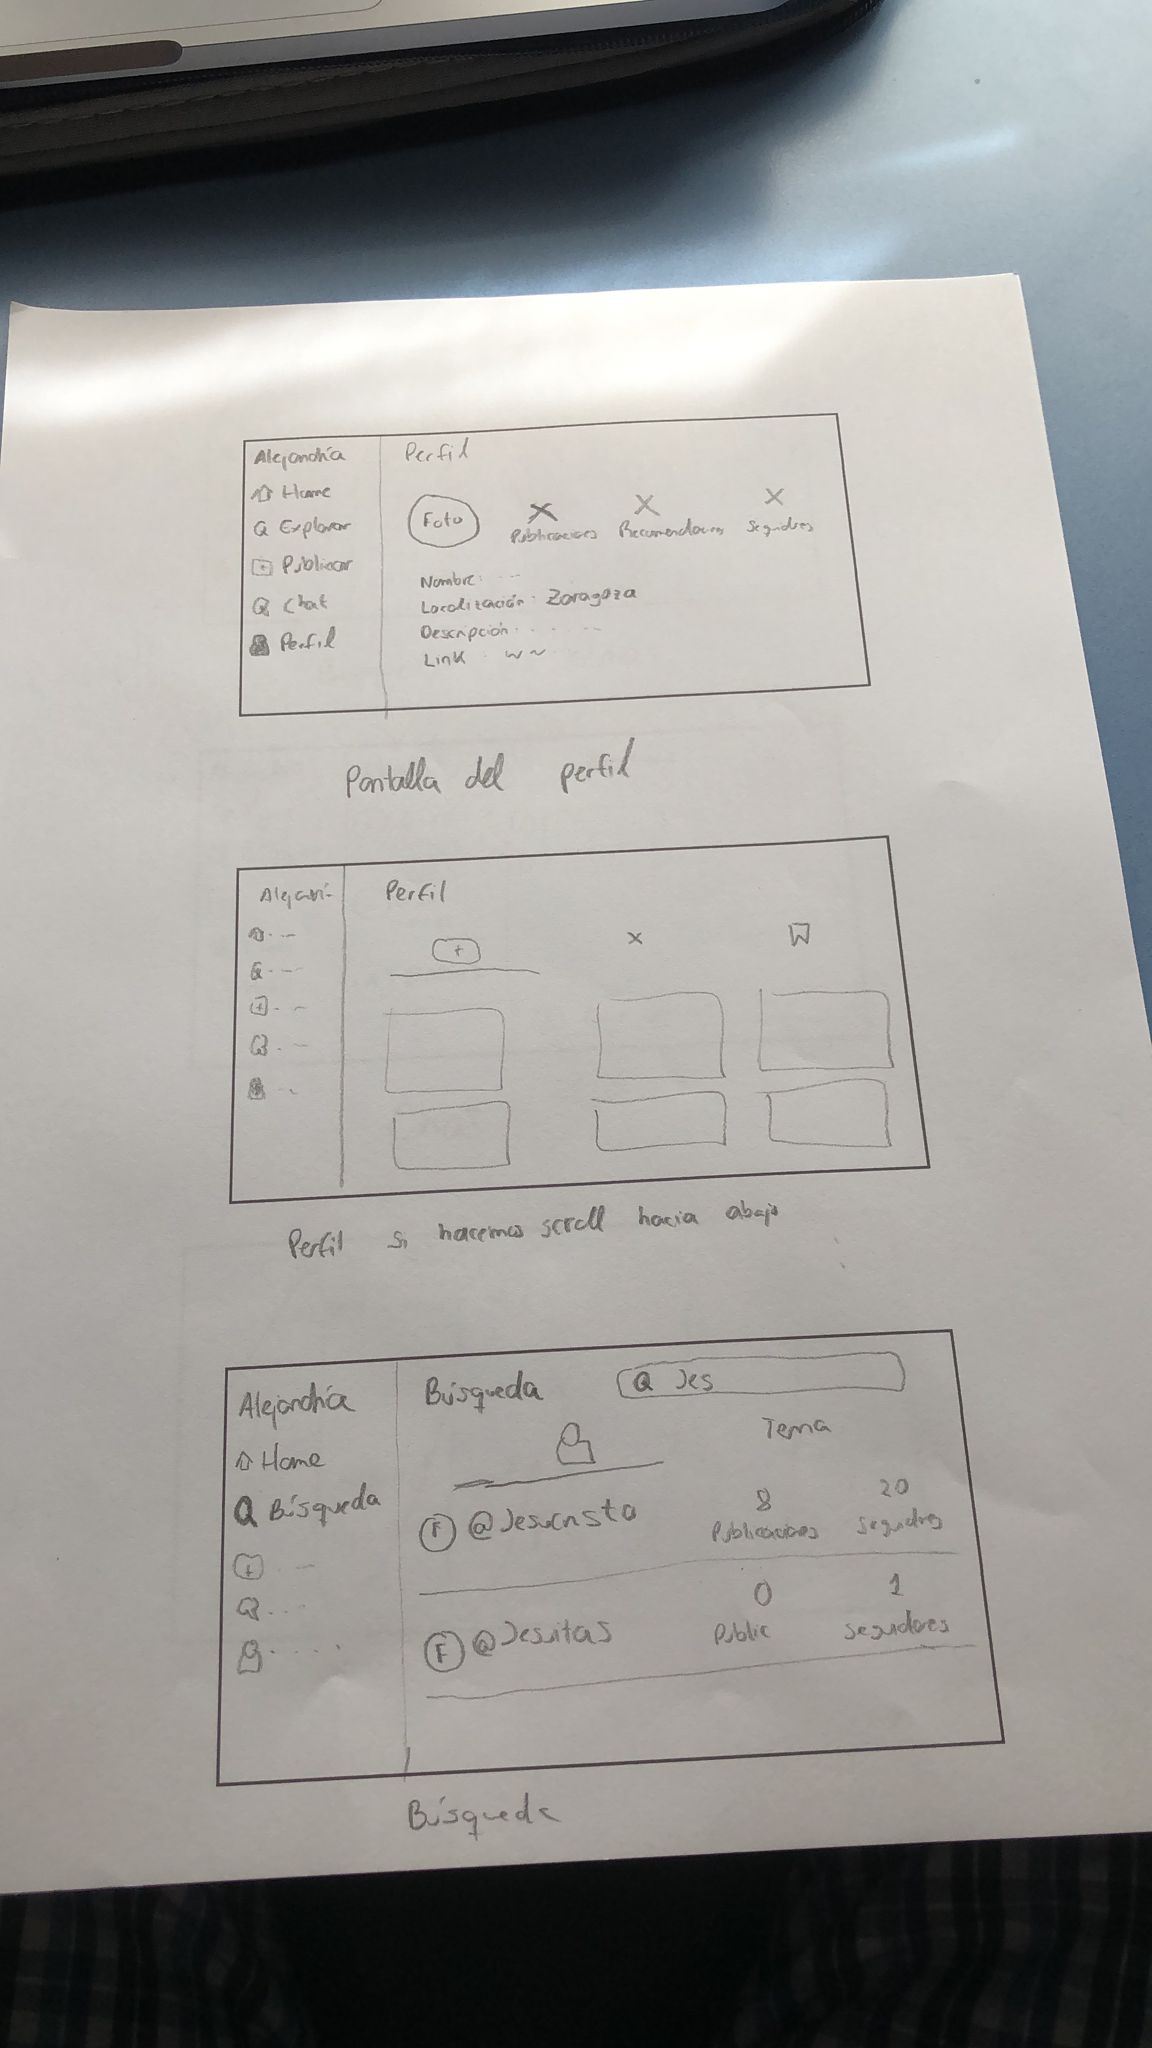 Alejandría
Home
Q Explorar
+ Publicar
Chat
Perfil
Perfil
Foto
X X X
Publicaciones Recomendaciones Seguidores
Nombre:
Localización: Zaragoza
Descripción:
Link:
Pantalla del perfil
Alejandrí-
+
Perfil
+ x
Perfil si hacemos scroll hacia abajo
Alejandría
Home
Q Búsqueda
+
Búsqueda
Q Jes
Tema
F @Jesucristo 8 20
Publicaciones Seguidores
F @Jesuitas 0 1
Public Seguidores
Búsqueda